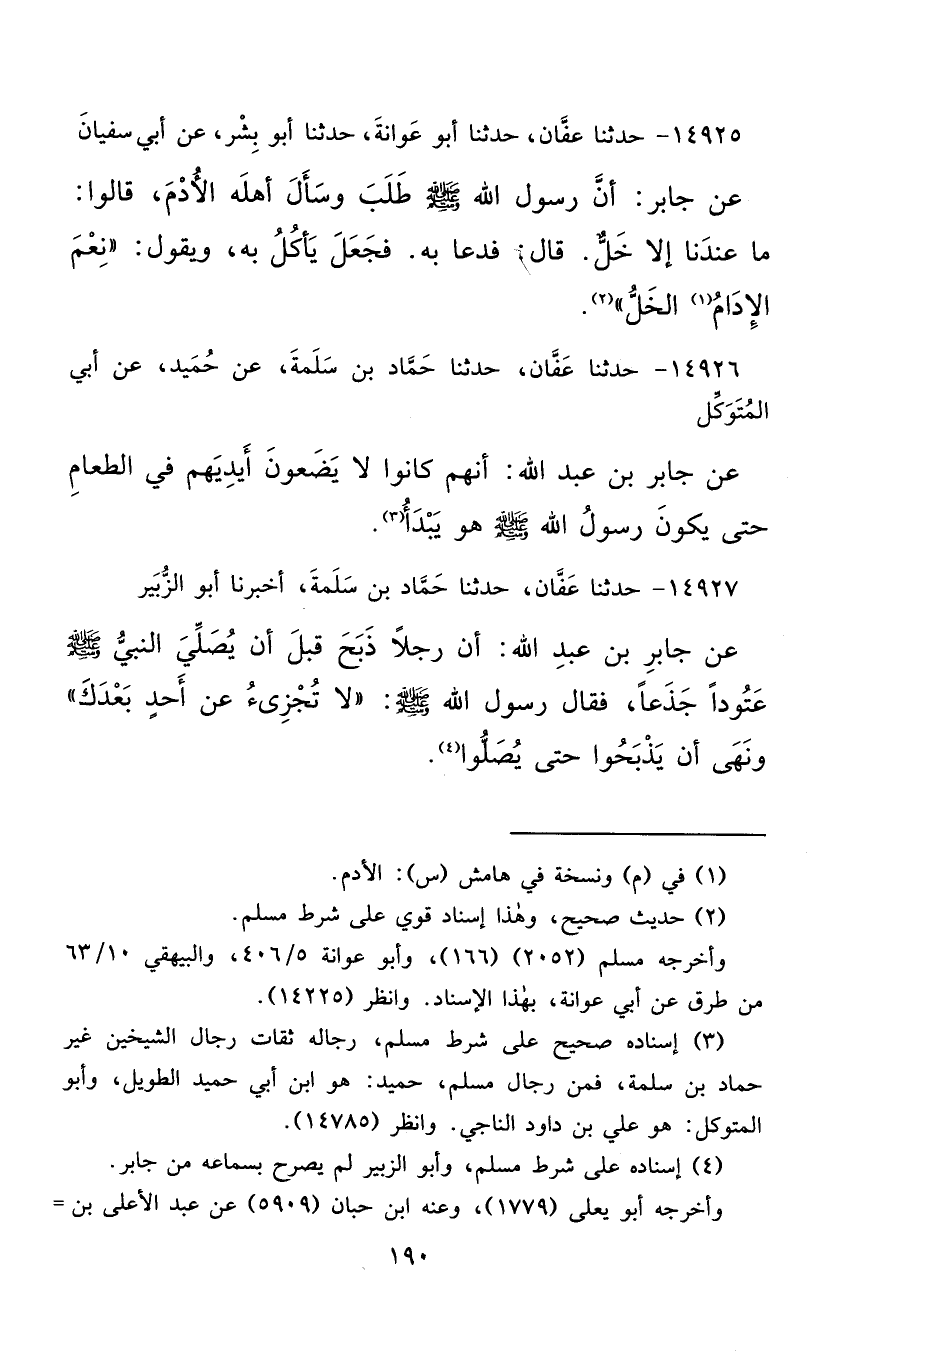 ١٤٩٢٥- حدثنا عفَّان، حدثنا أبو عَوانةَ، حدثنا أبو بِشْر، عن أبي سفيانَ
عن جابر: أنَّ رسول الله ﷺ طَلَبَ وسَأَلَ أهلَه الأُدْمَ، قالوا:
ما عندَنا إلا خَلٌّ. قال: فدعا به. فجَعَلَ يَأكُلُ به، ويقول: «نِعْمَ
الإِدَامُ(١) الخَلُّ»(٢).
١٤٩٢٦- حدثنا عَفَّان، حدثنا حَمَّاد بن سَلَمةَ، عن حُمَيد، عن أبي
المُتَوَكِّل
عن جابر بن عبد الله: أنهم كانوا لا يَضَعونَ أَيدِيَهم في الطعامِ
حتى يكونَ رسولُ الله ﷺ هو يَبْدَأُ(٣).
١٤٩٢٧- حدثنا عَفَّان، حدثنا حَمَّاد بن سَلَمةَ، أخبرنا أبو الزُّبَير
عن جابرِ بن عبدِ الله: أن رجلاً ذَبَحَ قبلَ أن يُصَلِّيَ النبيُّ ﷺ
عَتُوداً جَذَعاً، فقال رسول الله ﷺ: «لا تُجْزِىءُ عن أَحدٍ بَعْدَكَ»
ونَهَى أن يَذْبَحُوا حتى يُصَلُّوا(٤).
(١) في (م) ونسخة في هامش (س): الأدم.
(٢) حديث صحيح، وهٰذا إسناد قوي على شرط مسلم.
وأخرجه مسلم (٢٠٥٢) (١٦٦)، وأبو عوانة ٤٠٦/٥، والبيهقي ٦٣/١٠
من طرق عن أبي عوانة، بهٰذا الإسناد. وانظر (١٤٢٢٥).
(٣) إسناده صحيح على شرط مسلم، رجاله ثقات رجال الشيخين غير
حماد بن سلمة، فمن رجال مسلم، حميد: هو ابن أبي حميد الطويل، وأبو
المتوكل: هو علي بن داود الناجي. وانظر (١٤٧٨٥).
(٤) إسناده على شرط مسلم، وأبو الزبير لم يصرح بسماعه من جابر.
وأخرجه أبو يعلى (١٧٧٩)، وعنه ابن حبان (٥٩٠٩) عن عبد الأعلى بن =
١٩٠